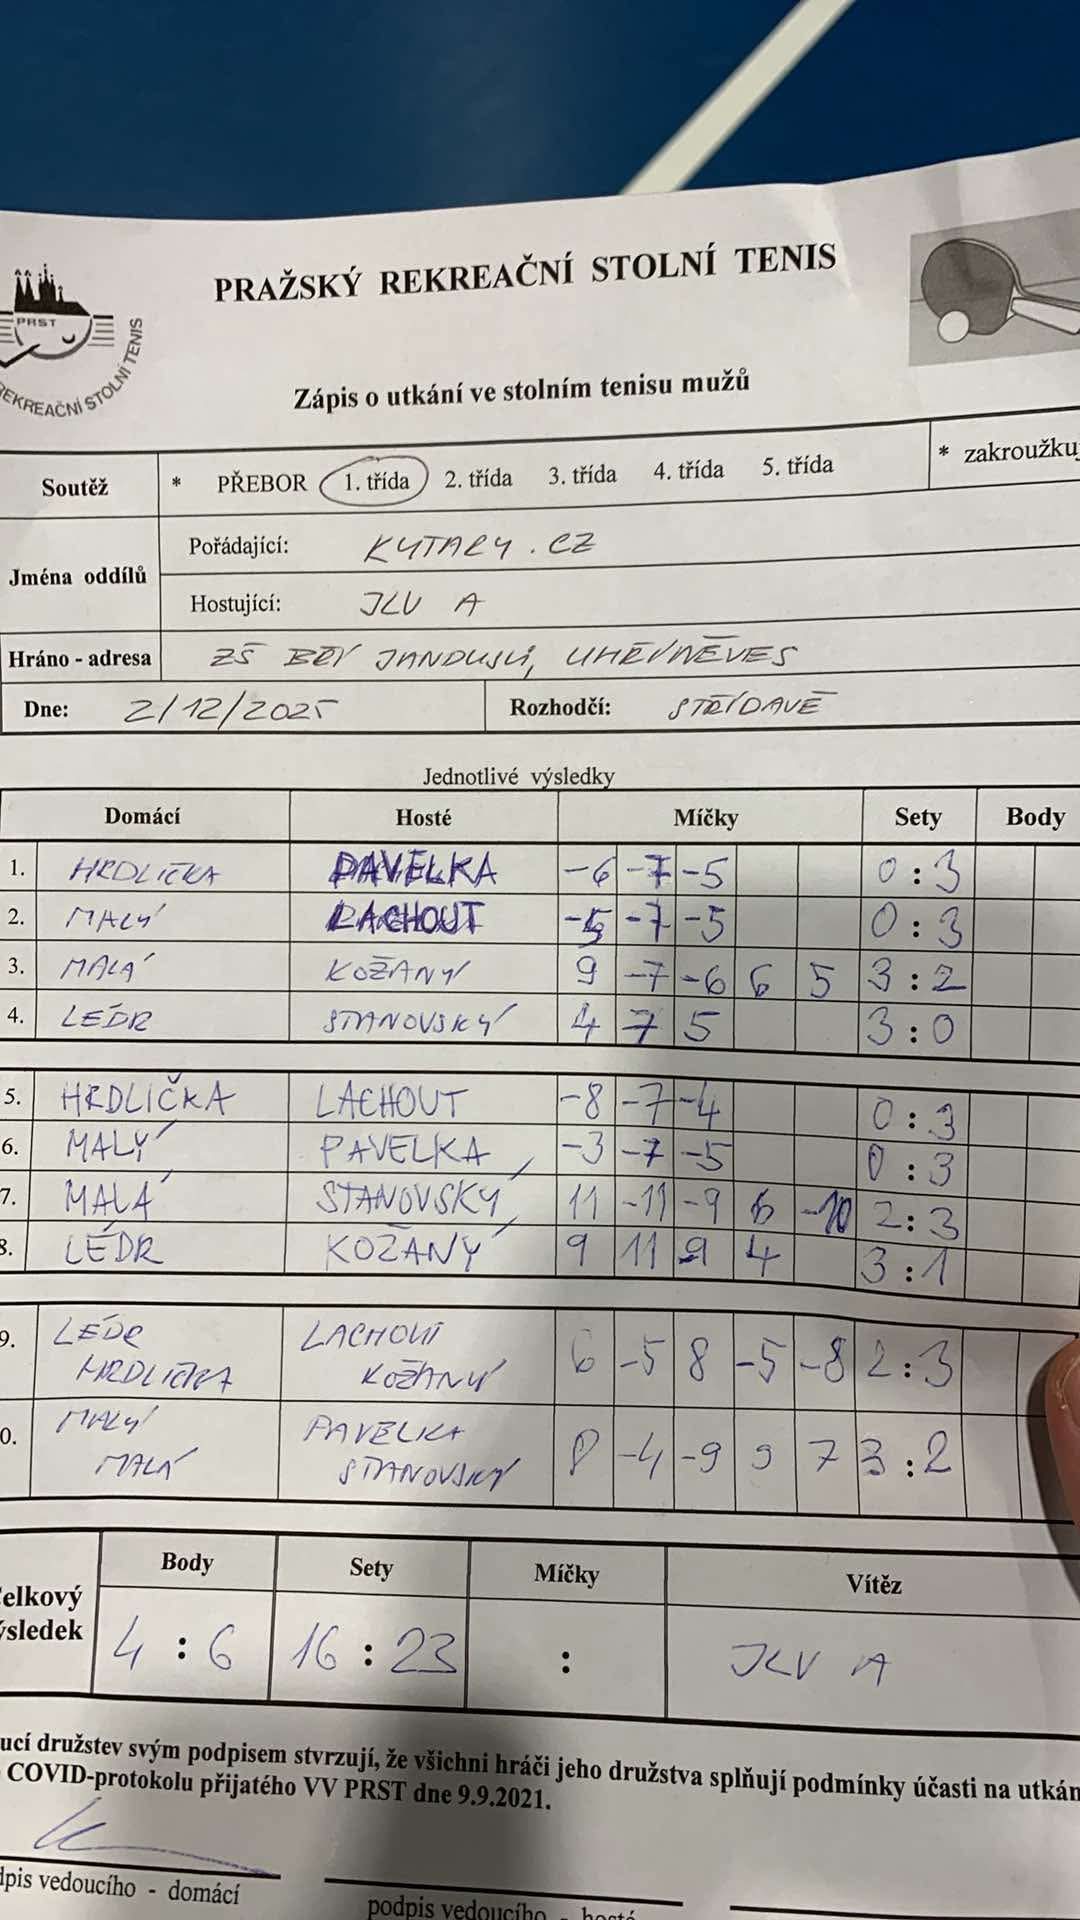 PRAŽSKÝ REKREAČNÍ STOLNÍ TENIS
PRST
REKREAČNÍ STOLNÍ TENIS
Zápis o utkání ve stolním tenisu mužů
Soutěž * PŘEBOR 1. třída 2. třída 3. třída 4. třída 5. třída * zakroužkuj
Jména oddílů
Pořádající: KYTARY.CZ
Hostující: JLV A
Hráno - adresa ZŠ BŘÍ JANDUSŮ, UHŘÍNĚVES
Dne: 2/12/2025 Rozhodčí: STŘÍDAVĚ
Jednotlivé výsledky
Domácí Hosté Míčky Sety Body
1. HRDLIČKA PAVELKA -6 -7 -5 0:3
2. MALÝ LACHOUT -5 -7 -5 0:3
3. MALÁ KOŽANÝ 9 -7 -6 6 5 3:2
4. LÉDR STANOVSKÝ 4 7 5 3:0
5. HRDLIČKA LACHOUT -8 -7 -4 0:3
6. MALÝ PAVELKA -3 -7 -5 0:3
7. MALÁ STANOVSKÝ 11 -11 -9 6 -10 2:3
8. LÉDR KOŽANÝ 9 11 9 4 3:1
9. LÉDR LACHOUT 6 -5 8 -5 -8 2:3
HRDLIČKA KOŽANÝ
0. MALÝ PAVELKA 8 -4 -9 9 7 3:2
MALÁ STANOVSKÝ
Body Sety Míčky Vítěz
elkový
ýsledek 4:6 16:23 : JLV A
ucí družstev svým podpisem stvrzují, že všichni hráči jeho družstva splňují podmínky účasti na utkán
COVID-protokolu přijatého VV PRST dne 9.9.2021.
dpis vedoucího - domácí
podpis vedoucího - hosté